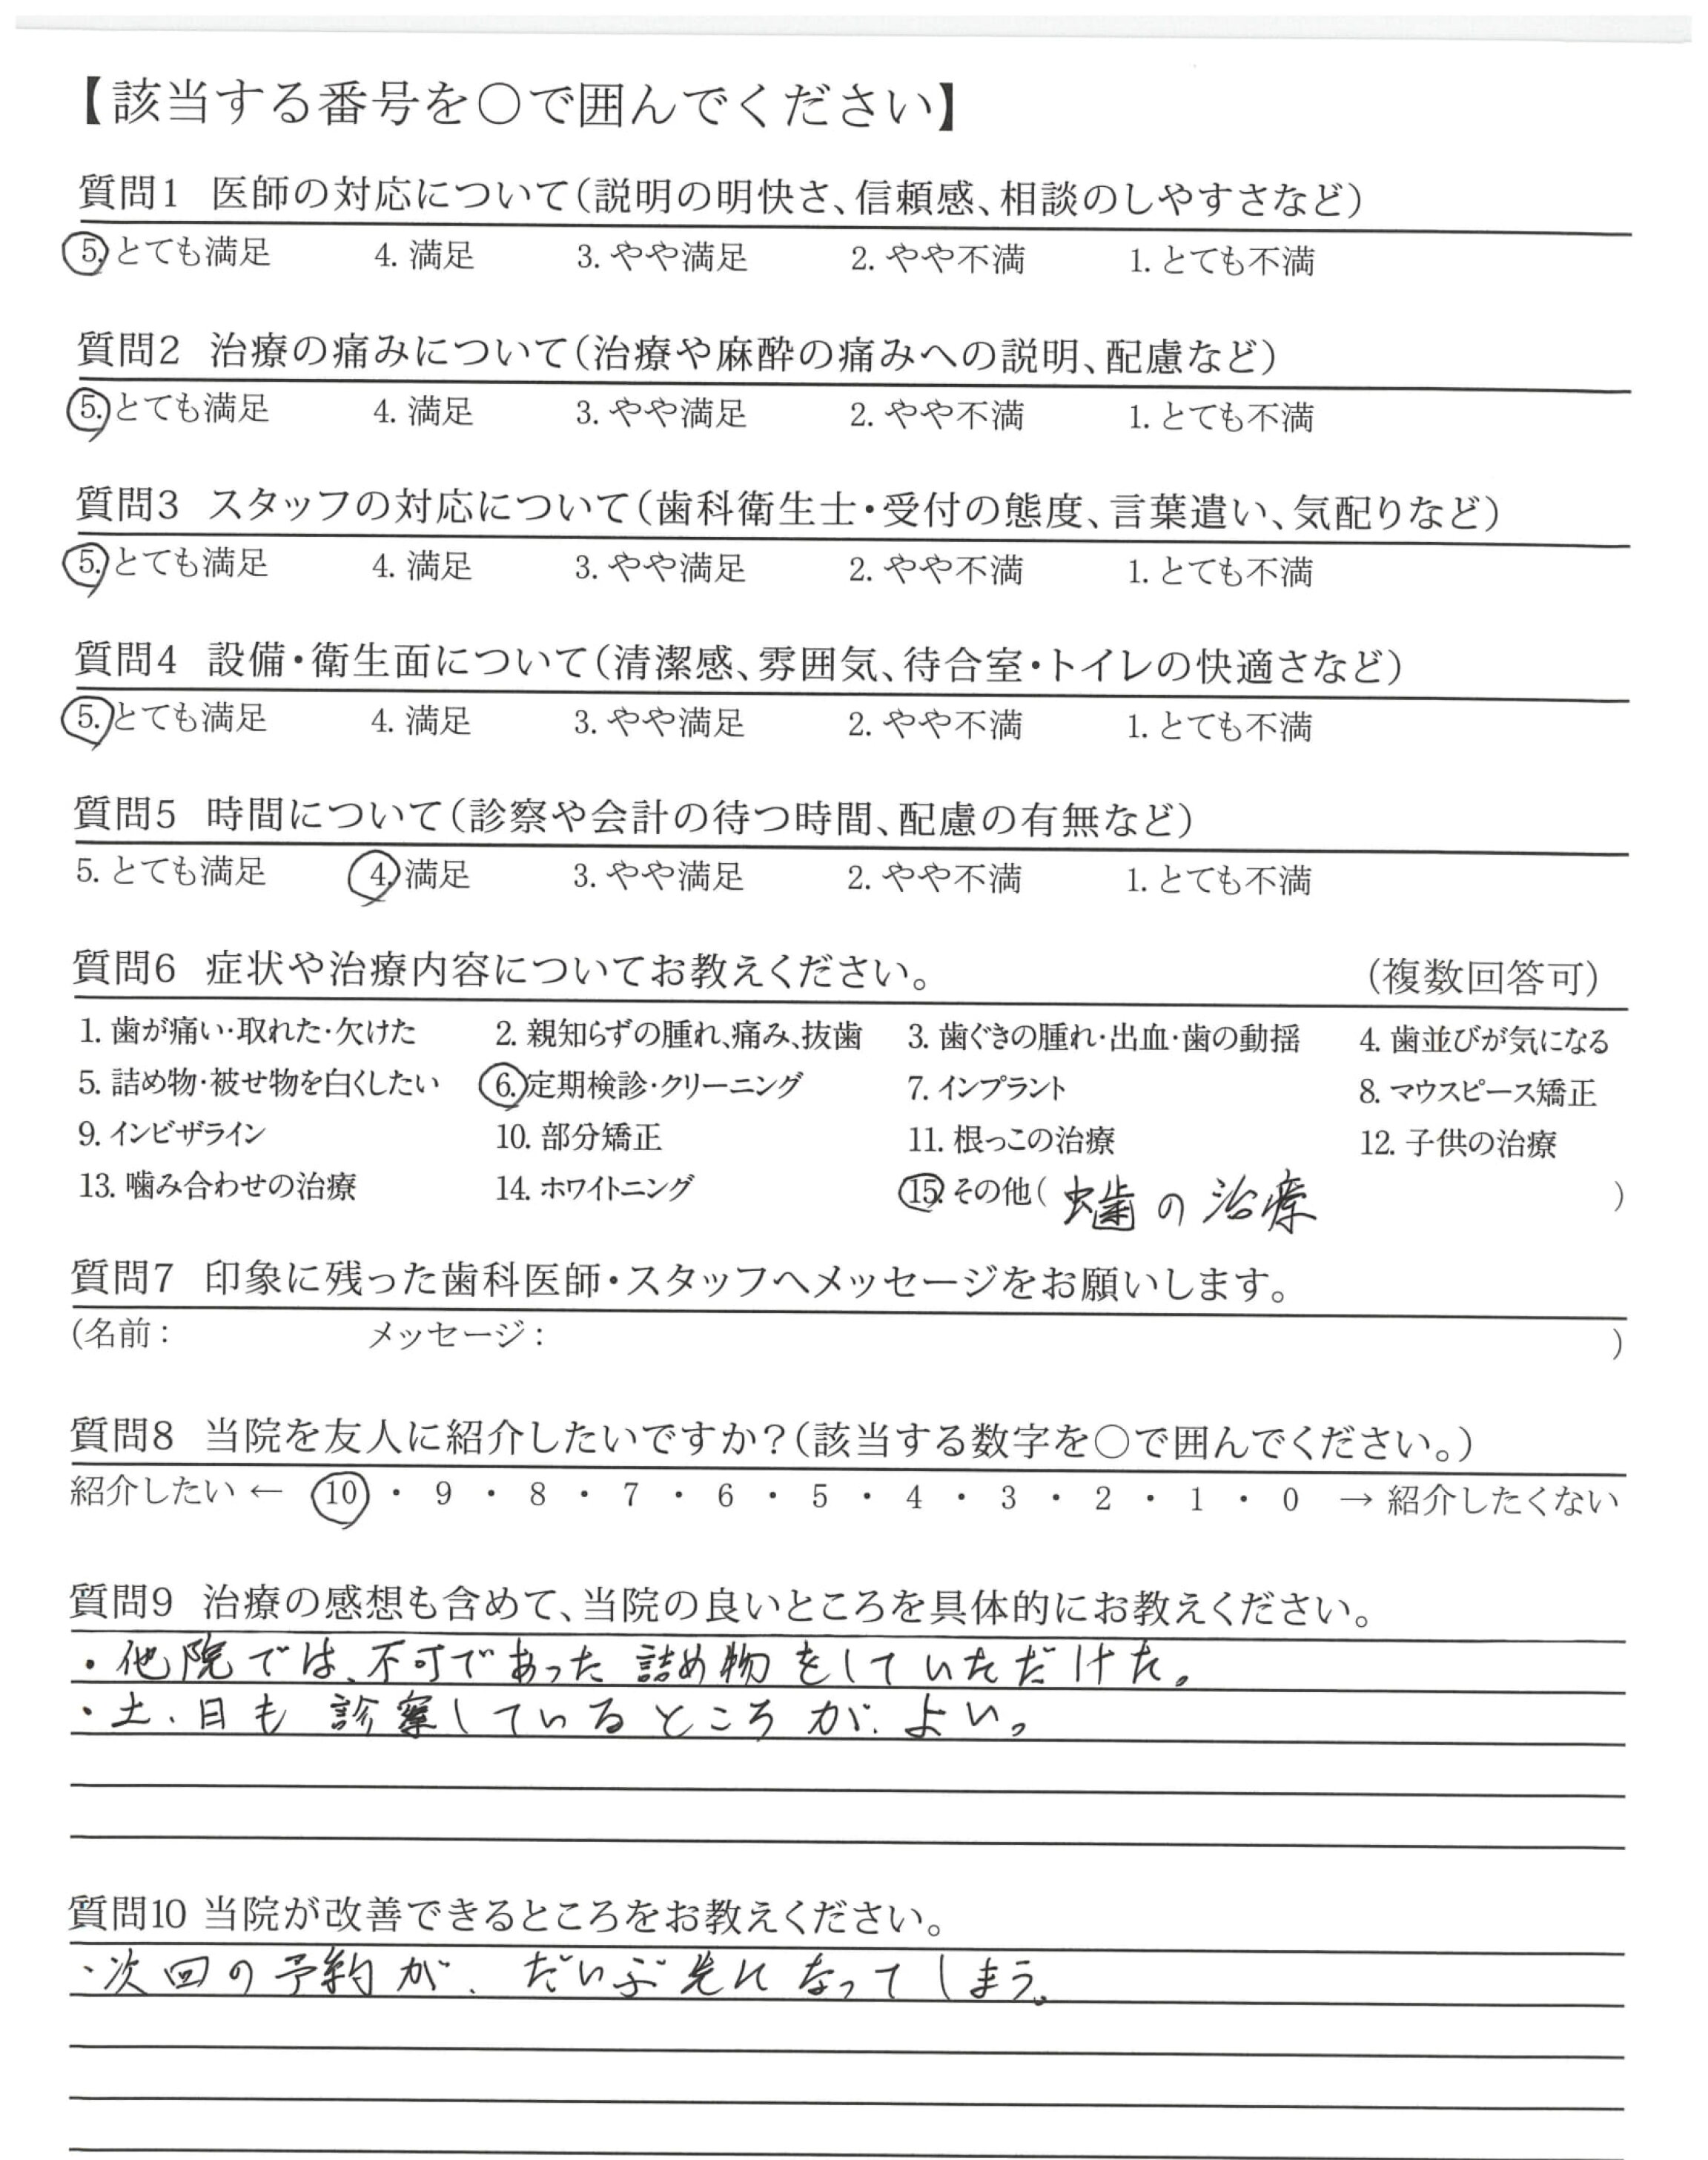 【該当する番号を○で囲んでください】
質問1 医師の対応について(説明の明快さ、信頼感、相談のしやすさなど)
5. とても満足 4. 満足 3. やや満足 2. やや不満 1. とても不満
質問2 治療の痛みについて(治療や麻酔の痛みへの説明、配慮など)
5. とても満足 4. 満足 3. やや満足 2. やや不満 1. とても不満
質問3 スタッフの対応について(歯科衛生士・受付の態度、言葉遣い、気配りなど)
5. とても満足 4. 満足 3. やや満足 2. やや不満 1. とても不満
質問4 設備・衛生面について(清潔感、雰囲気、待合室・トイレの快適さなど)
5. とても満足 4. 満足 3. やや満足 2. やや不満 1. とても不満
質問5 時間について(診察や会計の待つ時間、配慮の有無など)
5. とても満足 4. 満足 3. やや満足 2. やや不満 1. とても不満
質問6 症状や治療内容についてお教えください。 (複数回答可)
1. 歯が痛い・取れた・欠けた 2. 親知らずの腫れ、痛み、抜歯 3. 歯ぐきの腫れ・出血・歯の動揺 4. 歯並びが気になる
5. 詰め物・被せ物を白くしたい 6. 定期検診・クリーニング 7. インプラント 8. マウスピース矯正
9. インビザライン 10. 部分矯正 11. 根っこの治療 12. 子供の治療
13. 噛み合わせの治療 14. ホワイトニング 15. その他( 虫歯の治療 )
質問7 印象に残った歯科医師・スタッフへメッセージをお願いします。
(名前: メッセージ: )
質問8 当院を友人に紹介したいですか?(該当する数字を○で囲んでください。)
紹介したい ← 10 ・ 9 ・ 8 ・ 7 ・ 6 ・ 5 ・ 4 ・ 3 ・ 2 ・ 1 ・ 0 → 紹介したくない
質問9 治療の感想も含めて、当院の良いところを具体的にお教えください。
・他院では、不可であった詰め物をしていただけた。
・土、日も診察しているところが、よい。
質問10 当院が改善できるところをお教えください。
・次回の予約が、だいぶ先になってしまう。